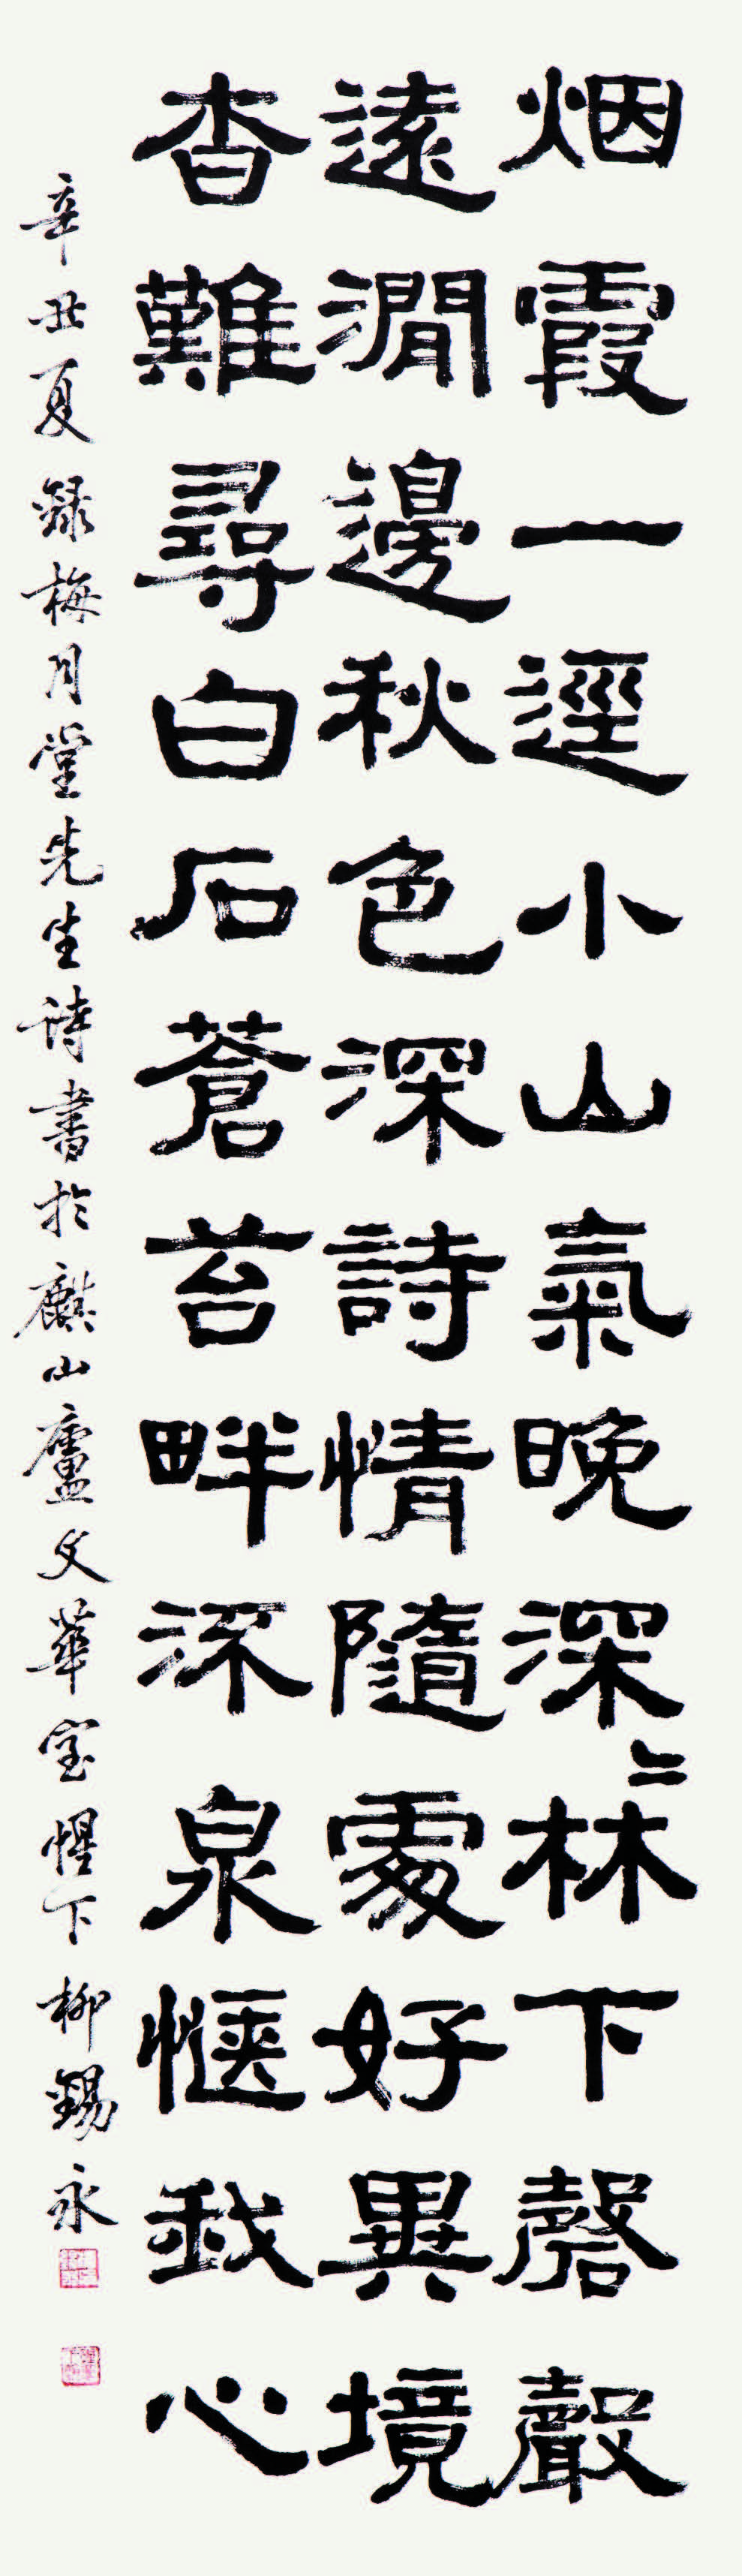 烟霞一逕小山氣晚深〻林下磬聲
遠澗邊秋色深詩情隨處好異境
杳難尋白石蒼苔畔流泉愜我心
辛丑夏錄梅月堂先生詩書於麒山廬文華室惺下柳錫永